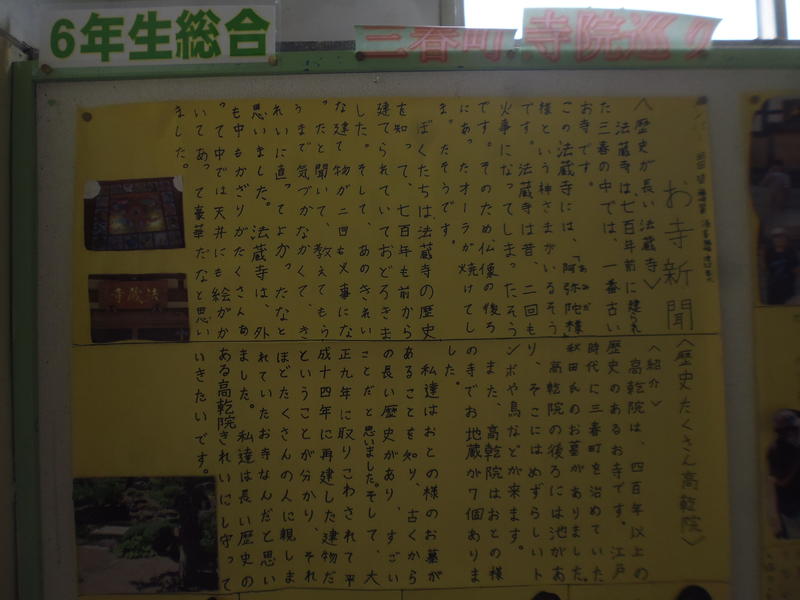 6年生総合
三春町 寺院巡り
お寺新聞
〈歴史が長い法蔵寺〉
法蔵寺は七百年前に建られ
た三春の中では、一番古い
お寺です。
この法蔵寺には、「阿弥陀様」
様という神さまがいるそう
です。法蔵寺は昔、二回も
火事になってしまったそう
です。そのため仏像の後ろ
にあったオーラが焼けてし
ま。たそうです。
ぼくたちは、法蔵寺の歴史
を知って、七百年も前から
建てられていておどろきま
した。そして、あのきれい
な建て物が二回も火事にな
ったと聞いて、教えてもら
うまで気づかなくて、き
れいに直ってよかったなと
思いました。法蔵寺は、外
も中もかざりがたくさんあ
って中では天井にも絵がか
いてあって豪華だなと思い
ました。
法蔵寺
〈歴史たくさん高乾院〉
〈紹介〉
高乾院は、四百年以上の
歴史のあるお寺です。江戸
時代に三春町を治めていた
秋田氏のお墓がありました。
高乾院の後ろには池があ
り、そこにはめずらしいト
ンボや鳥などが来ます。
また、高乾院はおとの様
の寺でお地蔵が7個ありま
した。
私達はおとの様のお墓が
あることを知り、古くから
の長い歴史があり、すごい
ことだと思いました。そして、大
正九年に取りこわされて平
成十四年に再建した建物だ
ということが分かり、それ
ほどたくさんの人に親しま
れていたお寺なんだと思い
ました。私達は長い歴史の
ある高乾院きれいにし守って
いきたいです。